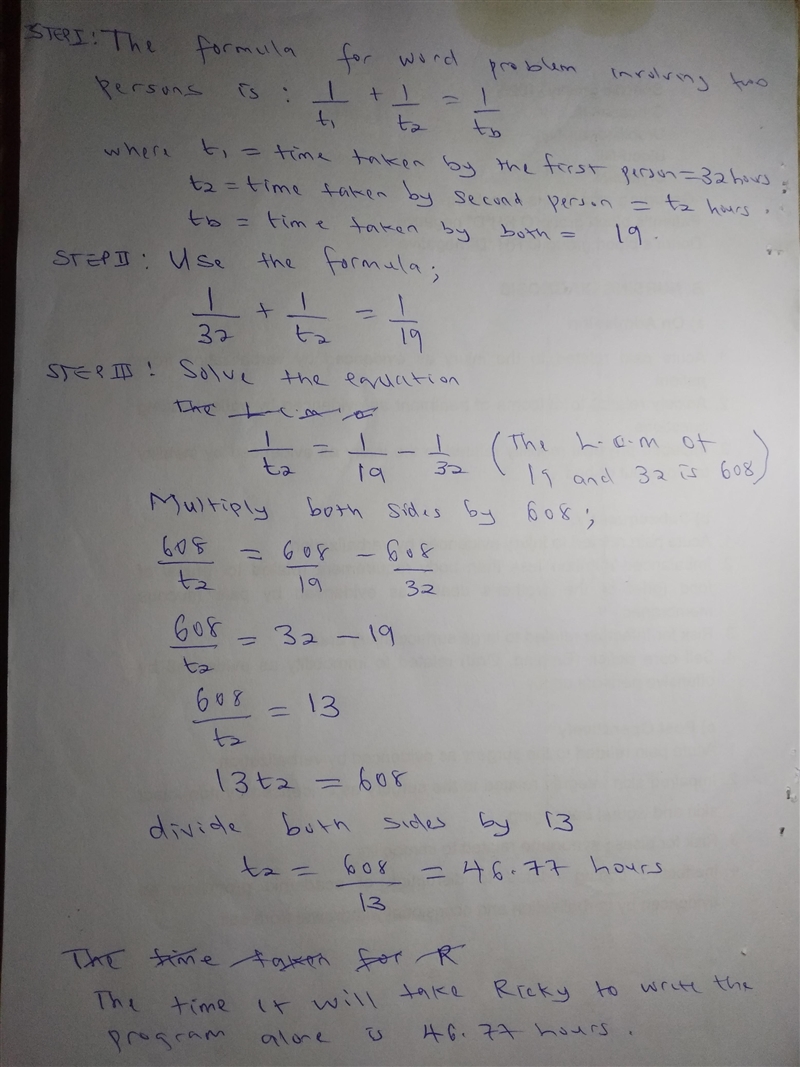 STEP I: The formula for word problem involving two
persons is : 1/t1 + 1/t2 = 1/tb
where t1 = time taken by the first person = 32 hours,
t2 = time taken by second person = t2 hours.
tb = time taken by both = 19.
STEP II: Use the formula;
1/32 + 1/t2 = 1/19
STEP III: Solve the equation
The L.C.M
1/t2 = 1/19 - 1/32 (The L.C.M of 19 and 32 is 608)
Multiply both sides by 608;
608/t2 = 608/19 - 608/32
608/t2 = 32 - 19
608/t2 = 13
13t2 = 608
divide both sides by 13
t2 = 608/13 = 46.77 hours
The time taken for R
The time it will take Ricky to write the
program alone is 46.77 hours.